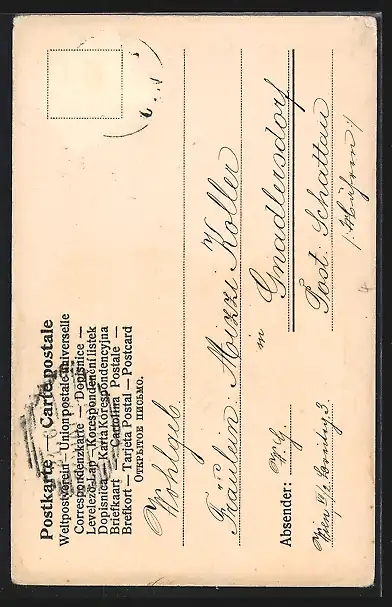 Postkarte — Carte postale
Weltpostverein — Union postale universelle
Correspondenzkarte — Dopisnice —
Levelező-Lap — Korespondenční lístek
Dopisnica — Karta Korespondencyjna
Briefkaart — Cartolina Postale —
Brefkort — Tarjeta Postal — Postcard
ОТКРЫТОЕ ПИСЬМО.
Wohlgeb.
Fräulein: Mizzi Koller
in Gnadlersdorf
Post: Schattau
/: Mähren :/
Absender:
Wien